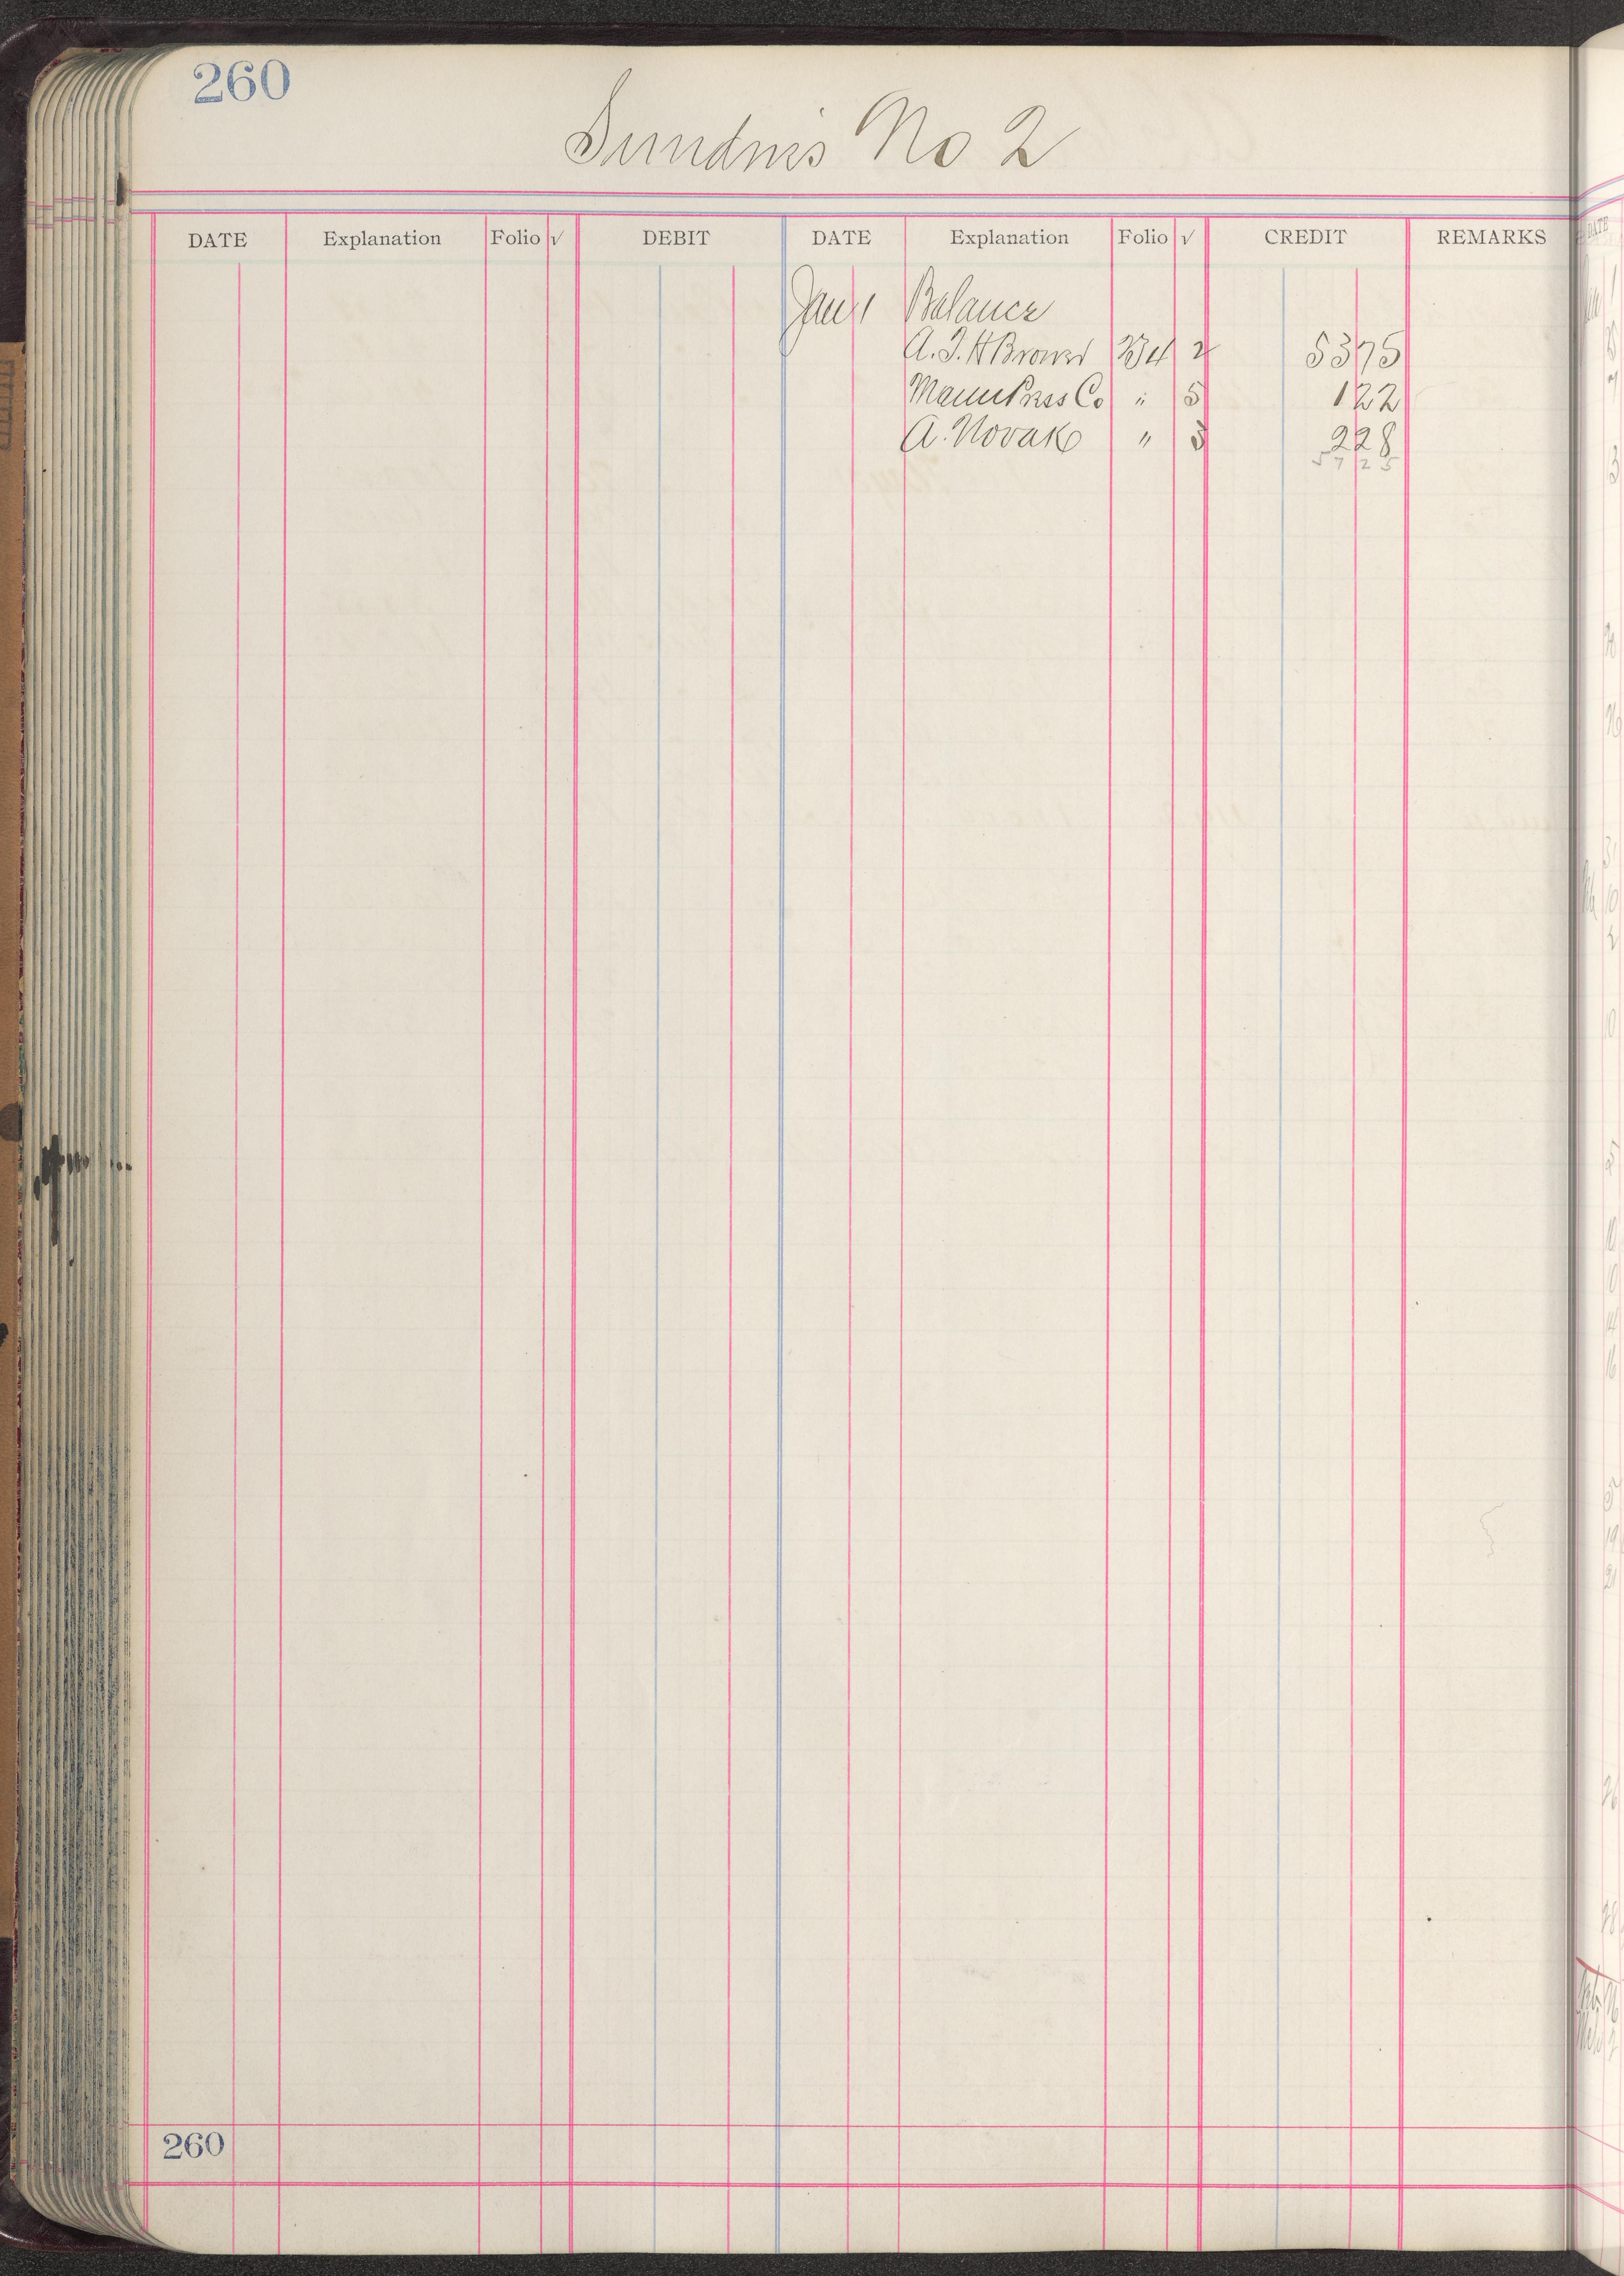 260
Sundries No 2
DATE Explanation Folio √ DEBIT DATE Explanation Folio √ CREDIT REMARKS
Jan 1 Balance
A. J. H Brown 234 2 53 75
Mann Press Co " 5 1 22
A. Novak " 3 2 28
57 25
260